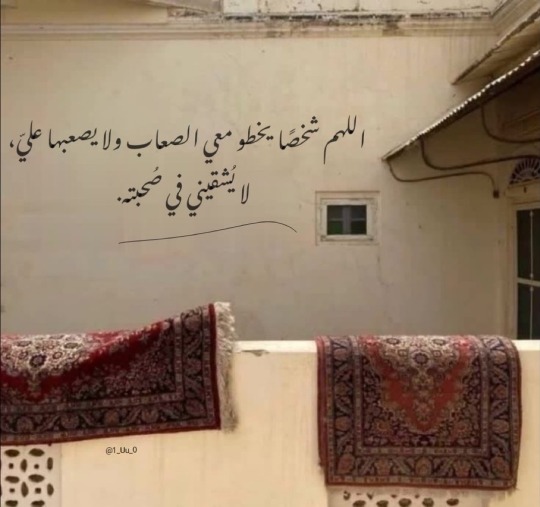 اللهم شخصًا يخطو معي الصعاب ولا يصعبها عليّ،
لا يُشقيني في صُحبته.
@1_Uu_0